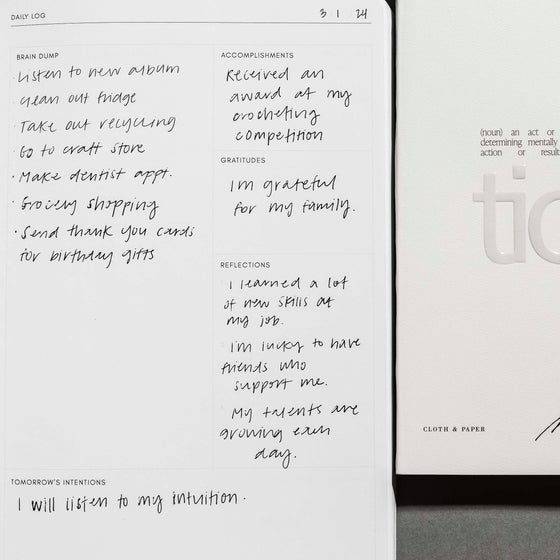 DAILY LOG
3 1 24
BRAIN DUMP
· Listen to new album
· Clean out fridge
· Take out recycling
· Go to craft store
· Make dentist appt.
· Grocery shopping
· Send thank you cards
for birthday gifts
ACCOMPLISHMENTS
Received an
award at my
crocheting
competition
GRATITUDES
Im grateful
for my family.
REFLECTIONS
I learned a lot
of new skills at
my job.
Im lucky to have
friends who
support me.
My talents are
growing each
day.
TOMORROW'S INTENTIONS
I will listen to my intuition.
(noun) an act or
determining mentally
action or result
tic
CLOTH & PAPER